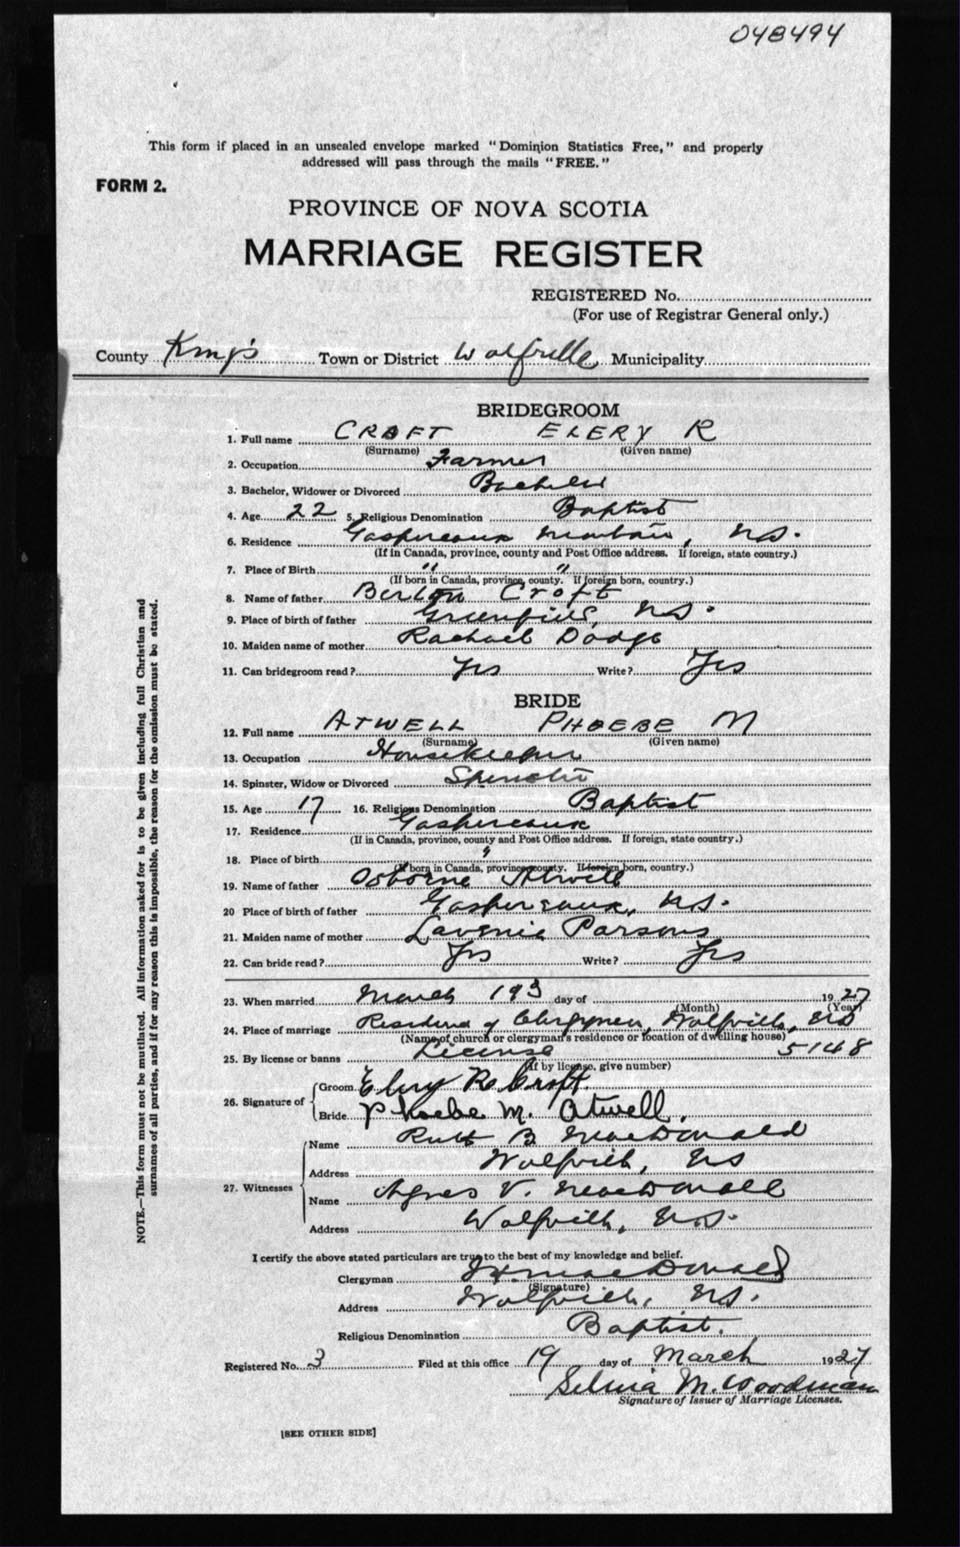 048494
This form if placed in an unsealed envelope marked "Dominion Statistics Free," and properly
addressed will pass through the mails "FREE."
FORM 2.
PROVINCE OF NOVA SCOTIA
MARRIAGE REGISTER
REGISTERED No.
(For use of Registrar General only.)
County King's Town or District Wolfville Municipality
BRIDEGROOM
1. Full name CROFT ELERY R
(Surname) (Given name)
2. Occupation Farmer
3. Bachelor, Widower or Divorced Bachelor
4. Age 22 5. Religious Denomination Baptist
6. Residence Gaspereaux Mountain, N.S.
(If in Canada, province, county and Post Office address. If foreign, state country.)
7. Place of Birth " "
(If born in Canada, province, county. If foreign born, country.)
8. Name of father Burton Croft
9. Place of birth of father Greenfield, N.S.
10. Maiden name of mother Rachael Dodge
11. Can bridegroom read? Yes Write? Yes
BRIDE
12. Full name ATWELL PHOEBE M
(Surname) (Given name)
13. Occupation Housekeeper
14. Spinster, Widow or Divorced Spinster
15. Age 17 16. Religious Denomination Baptist
17. Residence Gaspereaux
(If in Canada, province, county and Post Office address. If foreign, state country.)
18. Place of birth "
(If born in Canada, province, county. If foreign born, country.)
19. Name of father Osborne Atwell
20 Place of birth of father Gaspereaux, N.S.
21. Maiden name of mother Lavenia Parsons
22. Can bride read? Yes Write? Yes
23. When married March day of 1927
(Month) (Year)
24. Place of marriage Residence of Clergymen, Wolfville, N.S
(Name of church or clergyman's residence or location of dwelling house)
25. By license or banns License 5148
(If by license, give number)
26. Signature of Groom Elery R. Croft.
Bride Phoebe M. Atwell.
27. Witnesses Name Ruth B MacDonald
Address Wolfville, N.S
Name Agnes V. MacDonald
Address Wolfville, N.S.
I certify the above stated particulars are true to the best of my knowledge and belief.
Clergyman MacDonald
(Signature)
Address Wolfville, N.S.
Religious Denomination Baptist.
Registered No. 3 Filed at this office 19 day of March 1927
Silvia M. Woodman
Signature of Issuer of Marriage Licenses.
[SEE OTHER SIDE]
NOTE.—This form must not be mutilated. All information asked for is to be given including full Christian and
surnames of all parties, and if for any reason this is impossible, the reason for the omission must be stated.